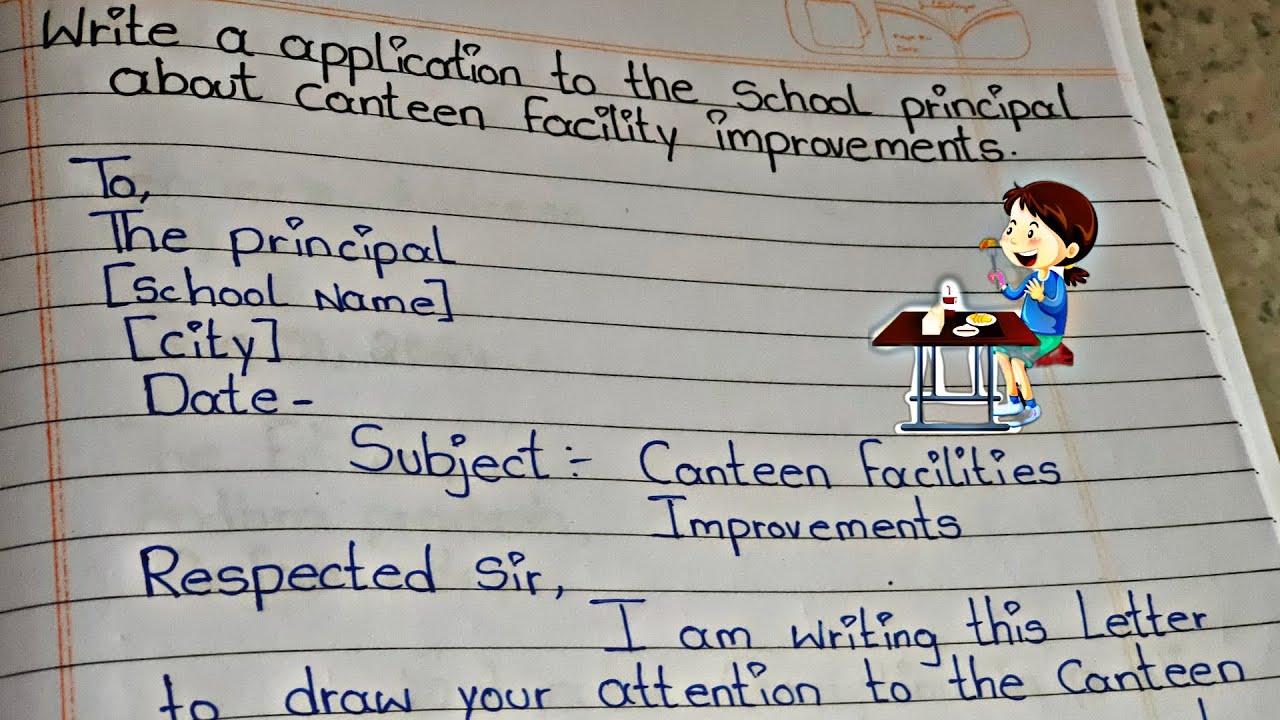 Write a application to the School principal
about Canteen facility improvements.
To,
The principal
[School Name]
[City]
Date -
Subject :- Canteen facilities
Improvements
Respected Sir,
I am writing this Letter
to draw your attention to the Canteen